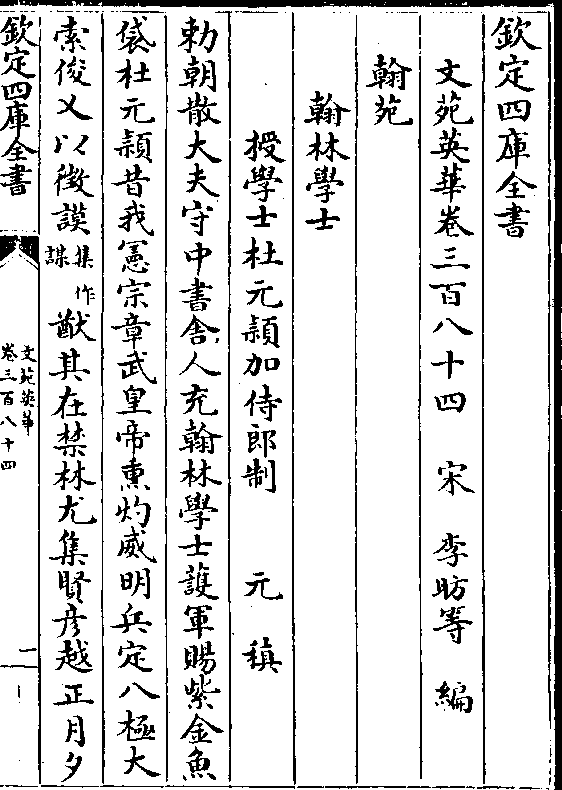 欽定四庫全書
文苑英華卷三百八十四　宋　李昉等　編
翰苑
翰林學士
授學士杜元頴加侍郎制　元稹
勅朝散大夫守中書舎人充翰林學士護軍賜紫金魚
袋杜元頴昔我憲宗章武皇帝熏灼威明兵定八極大
索俊乂以徴謨集作謀猷其在禁林尤集賢彦越正月夕
欽定四庫全書
文苑英華
卷三百八十四
一